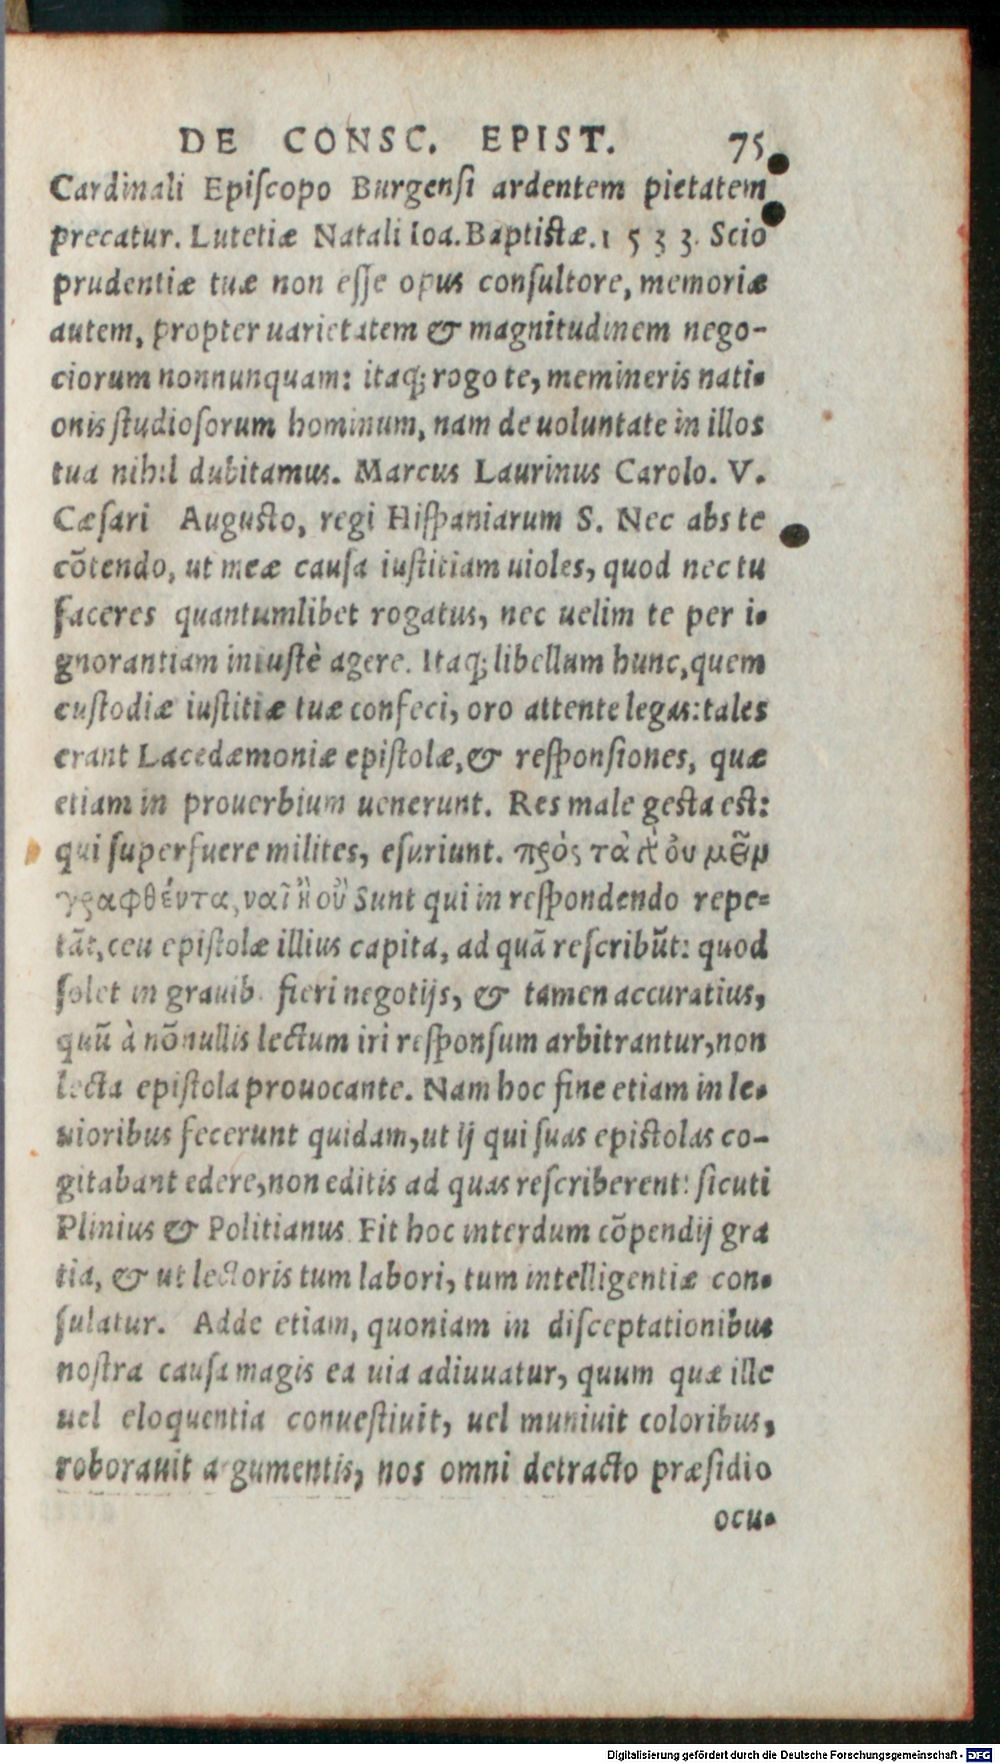 DE CONSC. EPIST. 75
Cardinali Epiſcopo Burgenſi ardentem pietatem
precatur. Lutetiæ Natali Ioa. Baptiſtæ. 1533. Scio
prudentiæ tuæ non eſſe opus conſultore, memoriæ
autem, propter uarietatem & magnitudinem nego-
ciorum nonnunquam: itaq; rogo te, memineris nati-
onis ſtudioſorum hominum, nam de uoluntate in illos
tua nihil dubitamus. Marcus Laurinus Carolo. V.
Cæſari Auguſto, regi Hiſpaniarum S. Nec abs te
cõtendo, ut meæ cauſa iuſtitiam uioles, quod nec tu
faceres quantumlibet rogatus, nec uelim te per i-
gnorantiam iniuſtè agere. Itaq; libellum hunc, quem
cuſtodiæ iuſtitiæ tuæ confeci, oro attente legas: tales
erant Lacedæmoniæ epiſtolæ, & reſponſiones, quæ
etiam in prouerbium uenerunt. Res male geſta eſt:
qui ſuperfuere milites, eſuriunt. πρὸς τὰ
γραφθέντα, ναῒ ἢ οὒ Sunt qui in reſpondendo repe-
tãt, ceu epiſtolæ illius capita, ad quã reſcribũt: quod
ſolet in grauib. fieri negotijs, & tamen accuratius,
quũ à nõnullis lectum iri reſponſum arbitrantur, non
lecta epiſtola prouocante. Nam hoc fine etiam in le-
uioribus fecerunt quidam, ut ij qui ſuas epiſtolas co-
gitabant edere, non editis ad quas reſcriberent: ſicuti
Plinius & Politianus. Fit hoc interdum cõpendij gra
tia, & ut lectoris tum labori, tum intelligentiæ con-
ſulatur. Adde etiam, quoniam in diſceptationibus
noſtra cauſa magis ea uia adiuuatur, quum quæ ille
uel eloquentia conueſtiuit, uel muniuit coloribus,
roborauit argumentis, nos omni detracto præſidio
ocu-
Digitalisierung gefördert durch die Deutsche Forschungsgemeinschaft - DFG